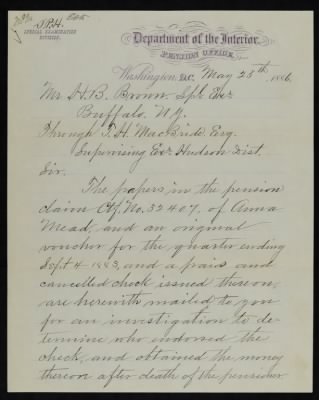 S.P.H.
SPECIAL EXAMINATION
DIVISION.
Department of the Interior,
PENSION OFFICE,
Washington, D.C. May 25th, 1886
Mr H. B. Brown Spl Exr
Buffalo. N.Y.
Through T. H. MacBride Esq.
Supervising Exr Hudson Dist.
Sir.
The papers in the pension
claim Ctf. No. 32407, of Anna
Mead, and an original
voucher for the quarter ending
Sept 4 1883, and a paid and
cancelled check issued thereon,
are herewith mailed to you
for an investigation to de-
termine who endorsed the
check, and obtained the money
thereon after death of the pensioner